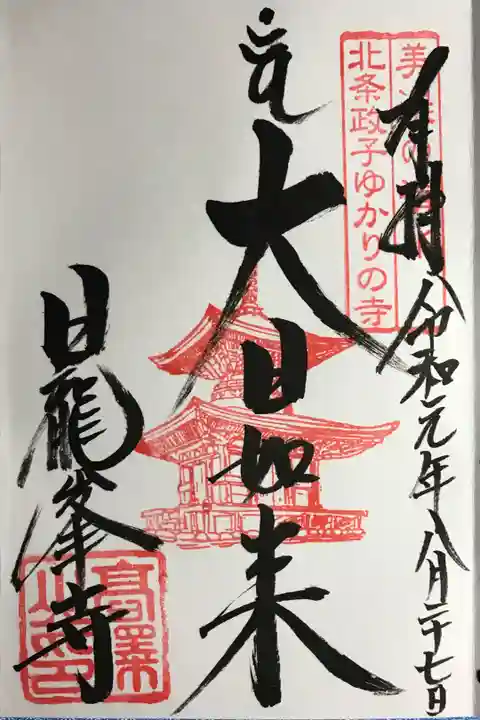 奉拝 令和元年八月二十七日
北条政子ゆかりの寺
大日如来
日龍峯寺
高澤